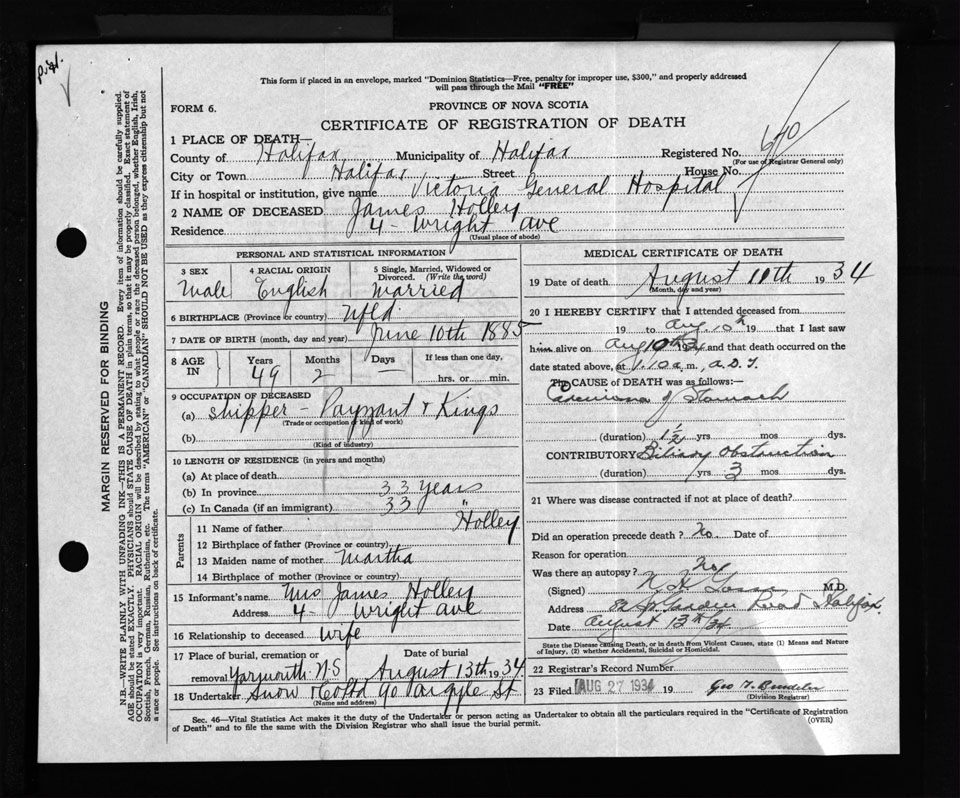 This form if placed in an envelope, marked "Dominion Statistics—Free, penalty for improper use, $300," and properly addressed
will pass through the Mail "FREE"
FORM 6.
PROVINCE OF NOVA SCOTIA
CERTIFICATE OF REGISTRATION OF DEATH
1 PLACE OF DEATH—
County of Halifax Municipality of Halifax Registered No. 640
(For use of Registrar General only)
City or Town Halifax Street House No.
If in hospital or institution, give name Victoria General Hospital
2 NAME OF DECEASED James Holley
Residence 4 - Wright Ave
(Usual place of abode)
PERSONAL AND STATISTICAL INFORMATION
3 SEX 4 RACIAL ORIGIN 5 Single, Married, Widowed or Divorced. (Write the word)
Male English Married
6 BIRTHPLACE (Province or country) Nfld
7 DATE OF BIRTH (month, day and year) June 10th 1885
8 AGE IN Years Months Days If less than one day,
49 2 — hrs. or min.
9 OCCUPATION OF DECEASED
(a) Shipper - Payzant & Kings
(Trade or occupation or kind of work)
(b)
(Kind of industry)
10 LENGTH OF RESIDENCE (in years and months)
(a) At place of death
(b) In province 33 Years
(c) In Canada (if an immigrant) 33 "
Parents
11 Name of father Holley
12 Birthplace of father (Province or country)
13 Maiden name of mother Martha
14 Birthplace of mother (Province or country)
15 Informant's name Mrs James Holley
Address 4 - Wright Ave
16 Relationship to deceased Wife
17 Place of burial, cremation or removal Date of burial
Yarmouth N.S August 13th 1934
18 Undertaker Snow & Co Ltd 90 Argyle St
(Name and address)
MEDICAL CERTIFICATE OF DEATH
19 Date of death August 10th 1934
(Month, day and year)
20 I HEREBY CERTIFY that I attended deceased from
19 to Aug 10th 19 that I last saw
him alive on Aug 10th 34 and that death occurred on the
date stated above, at 1.10 a.m, A.D.T.
The CAUSE of DEATH was as follows:—
Carcinoma of Stomach
(duration) 1½ yrs mos dys.
CONTRIBUTORY Biliary Obstruction
(duration) yrs 3 mos. dys.
21 Where was disease contracted if not at place of death?
Did an operation precede death? No. Date of
Reason for operation
Was there an autopsy? No
(Signed) M.D.
Address Road Halifax.
Date August 13th 34
State the Disease causing Death, or in death from Violent Causes, state (1) Means and Nature
of Injury, (2) whether Accidental, Suicidal or Homicidal.
22 Registrar's Record Number
23 Filed AUG 27 1934 19
(Division Registrar)
Sec. 46—Vital Statistics Act makes it the duty of the Undertaker or person acting as Undertaker to obtain all the particulars required in the "Certificate of Registration
of Death" and to file the same with the Division Registrar who shall issue the burial permit.
(OVER)
MARGIN RESERVED FOR BINDING
N.B.—WRITE PLAINLY WITH UNFADING INK—THIS IS A PERMANENT RECORD. Every item of information should be carefully supplied.
AGE should be stated EXACTLY. PHYSICIANS should STATE CAUSE OF DEATH in plain terms, so that it may be properly classified. Exact statement of
OCCUPATION is very important. RACIAL ORIGIN will be described by stating to what people or race the deceased person belonged, whether English, Irish,
Scottish, French, German, Russian, Ruthenian, etc. The terms "AMERICAN" or "CANADIAN" SHOULD NOT BE USED as they express citizenship but not
a race or people. See instructions on back of certificate.